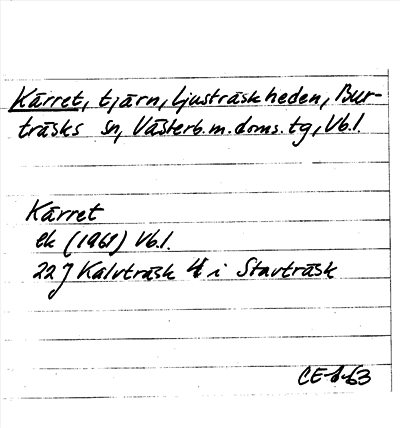 Kärret, tjärn, Ljusträskheden, Bur-
träsks sn, Västerb. m. doms. tg, Vb.l.
Kärret
ek (1961) Vb.l.
22 J Kalvträsk 4 i Stavträsk